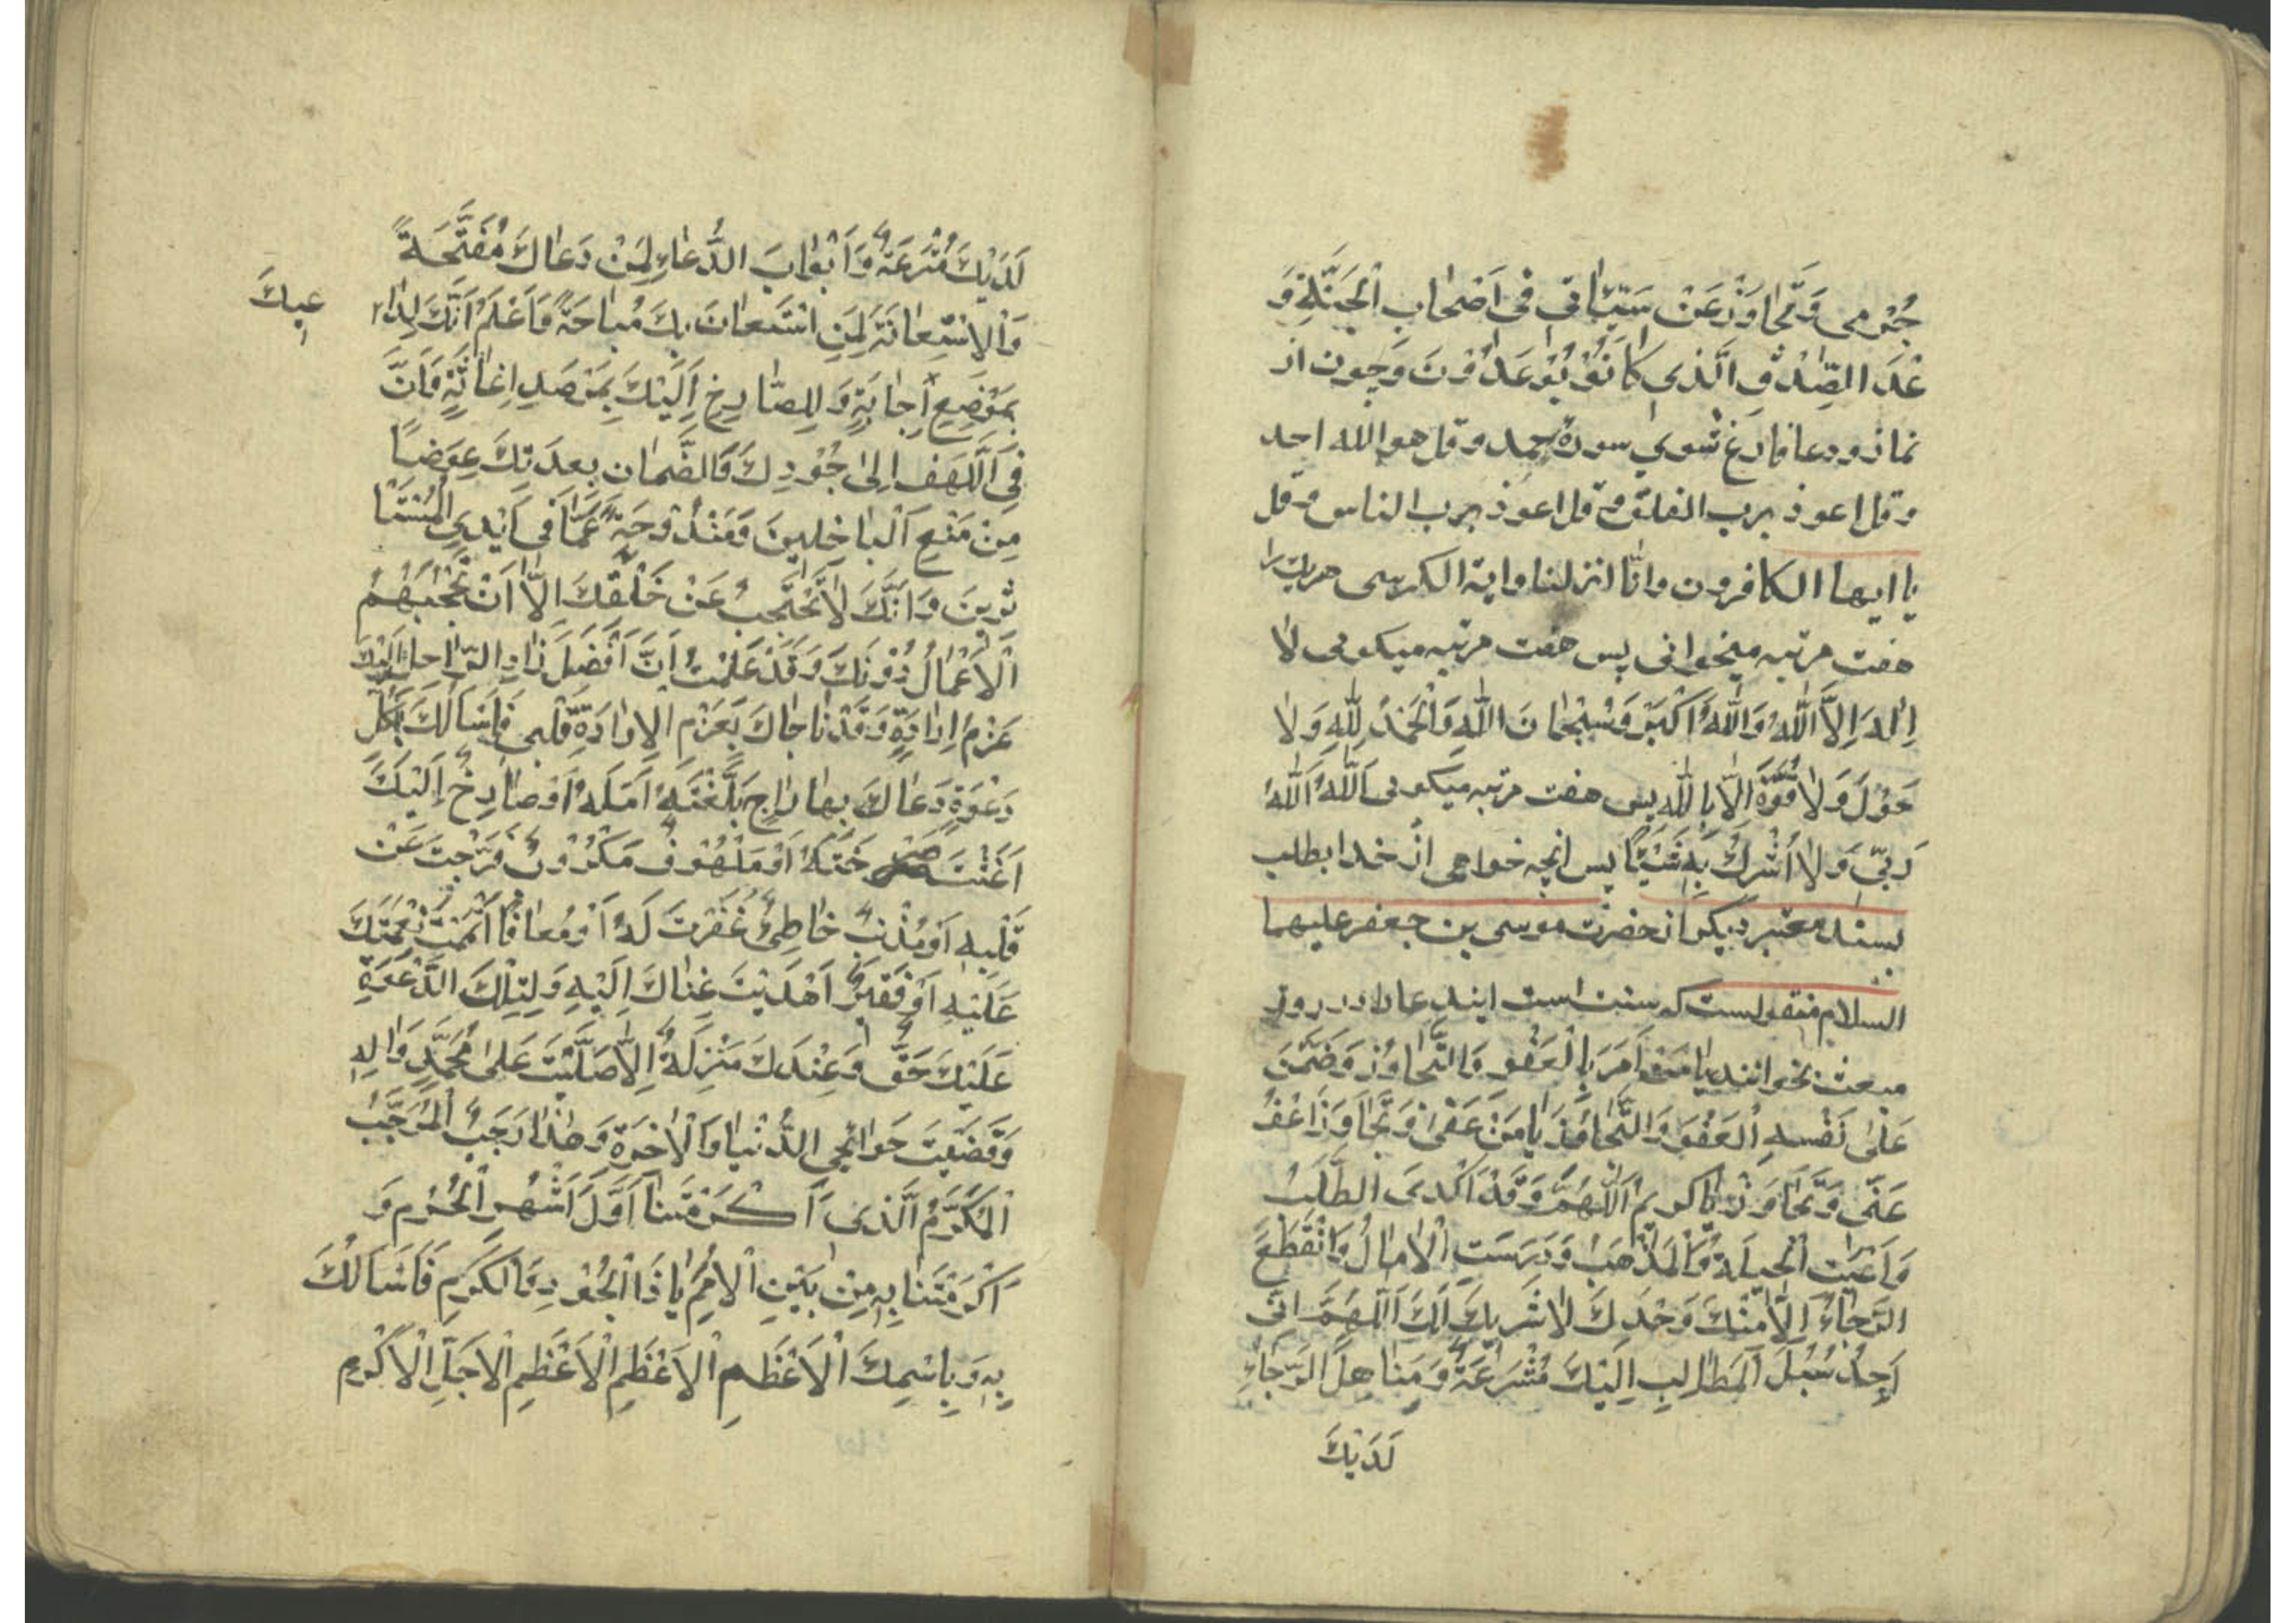 جُرْمی وَتَجٰاوَزْ عَنْ سَیِّئاٰتی فی اَصْحٰابِ الْجَنَّةِ وَ
عْدَ الصِّدْقِ الَّذی کٰانُوْا یُوْعَدُوْنَ وچون از
نماز ودعا فارغ شوی سورهٔ حمد وقل هو الله احد
وقل اعوذ برب الفلق وقل اعوذ برب الناس وقل
یا ایها الکافرون وانّا انزلنا وایة الکرسی هریك را
هفت مرتبه میخوانی پس هفت مرتبه میکوئی لاٰ
اِلٰهَ اِلاَّ اللّٰهُ وَاللّٰهُ اَکْبَرُ وَسُبْحٰانَ اللّٰهِ وَالْحَمْدُ لِلّٰهِ وَلاٰ
حَوْلَ وَلاٰ قُوَّةَ اِلاّٰ بِاللّٰهِ پس هفت مرتبه میکوئی اَللّٰهُ اَللّٰهُ
رَبّی وَلاٰ اُشْرِكُ بِهِ شَیْئًا پس انچه خواهی از خدا بطلب
بسند معتبر دیکر از حضرت موسی بن جعفر علیهما
السلام منقولست که سنت است ایندعا را در روز
مبعث بخوانند یٰا مَنْ اَمَرَ بِالْعَفْوِ وَالتَّجٰاوُزِ وَضَمَّنَ
عَلیٰ نَفْسِهِ الْعَفْوَ وَالتَّجٰاوُزَ یٰا مَنْ عَفیٰ وَتَجٰاوَزَ اعْفُ
عَنّی وَتَجٰاوَزْ یٰا کریمُ اَللّٰهُمَّ وَقَدْ اَکْدَی الطَّلَبُ
وَاَعْیَتِ الْحیلَةُ وَالْمَذْهَبُ وَدَرَسَتِ الْاٰمٰالُ وَانْقَطَعَ
الرَّجٰاءُ اِلاّٰ مِنْكَ وَحْدَكَ لاٰ شَریكَ لَكَ اَللّٰهُمَّ انّی
اَجِدُ سُبُلَ الْمَطٰالِبِ اِلَیْكَ مُشْرَعَةً وَمَنٰاهِلَ الرَّجٰاءِ
لَدَیْكَ
لَدَیْكَ مُتْرَعَةً وَاَبْوٰابَ الدُّعٰاءِ لِمَنْ دَعٰاكَ مُفَتَّحَةً
وَالْاِسْتِعٰانَةَ لِمَنِ اسْتَعٰانَ بِكَ مُبٰاحَةً وَاَعْلَمُ اَنَّكَ لِدٰا
عیكَ
بِمَوْضِعِ اِجٰابَةٍ وَلِلصّٰارِخِ اِلَیْكَ بِمَرْصَدِ اِغٰاثَةٍ وَاَنَّ
فِی اللَّهَفِ اِلیٰ جُوْدِكَ وَالضَّمٰانِ بِعِدَتِكَ عِوَضًا
مِنْ مَنْعِ الْبٰاخِلینَ وَمَنْدُوْحَةً عَمّٰا فی اَیْدِی الْمُسْتَأ
ثِرینَ وَاَنَّكَ لاٰ تَحْتَجِبُ عَنْ خَلْقِكَ اِلاّٰ اَنْ تَحْجُبَهُمُ
الْاَعْمٰالُ دُوْنَكَ وَقَدْ عَلِمْتُ اَنَّ اَفْضَلَ زٰادِ الرّٰاحِلِ اِلَیْكَ
عَزْمُ اِرٰادَةٍ وَقَدْ نٰاجٰاكَ بِعَزْمِ الْاِرٰادَةِ قَلْبی فَاَسْاَلُكَ بِکُلِّ
دَعْوَةٍ دَعٰاكَ بِهٰا رٰاجٍ بَلَّغْتَهُ اَمَلَهُ اَوْ صٰارِخٌ اِلَیْكَ
اَغَثْتَ صَرْخَتَهُ اَوْ مَلْهُوْفٌ مَکْرُوْبٌ فَرَّجْتَ عَنْ
قَلْبِهِ اَوْ مُذْنِبٌ خٰاطِئٌ غَفَرْتَ لَهُ اَوْ مُعٰافًا اَتْمَمْتَ نِعْمَتَكَ
عَلَیْهِ اَوْ فَقیرٌ اَهْدَیْتَ غِنٰاكَ اِلَیْهِ وَلِتِلْكَ الدَّعْوَةِ
عَلَیْكَ حَقٌّ وَعِنْدَكَ مَنْزِلَةٌ اِلاّٰ صَلَّیْتَ عَلیٰ مُحَمَّدٍ وَاٰلِهِ
وَقَضَیْتَ حَوٰائِجِی الدُّنْیٰا وَالْاٰخِرَةِ وَهٰذٰا رَجَبُ الْمُرَجَّبُ
الْمُکَرَّمُ الَّذی اَکْرَمْتَنٰا اَوَّلَ اَشْهُرِ الْحُرُمِ وَ
اَکْرَمْتَنٰا بِهِ مِنْ بَیْنِ الْاُمَمِ یٰا ذَا الْجُوْدِ وَالْکَرَمِ فَاَسْاَلُكَ
بِهِ وَبِاسْمِكَ الْاَعْظَمِ الْاَعْظَمِ الْاَعْظَمِ الْاَجَلِّ الْاَکْرَمِ